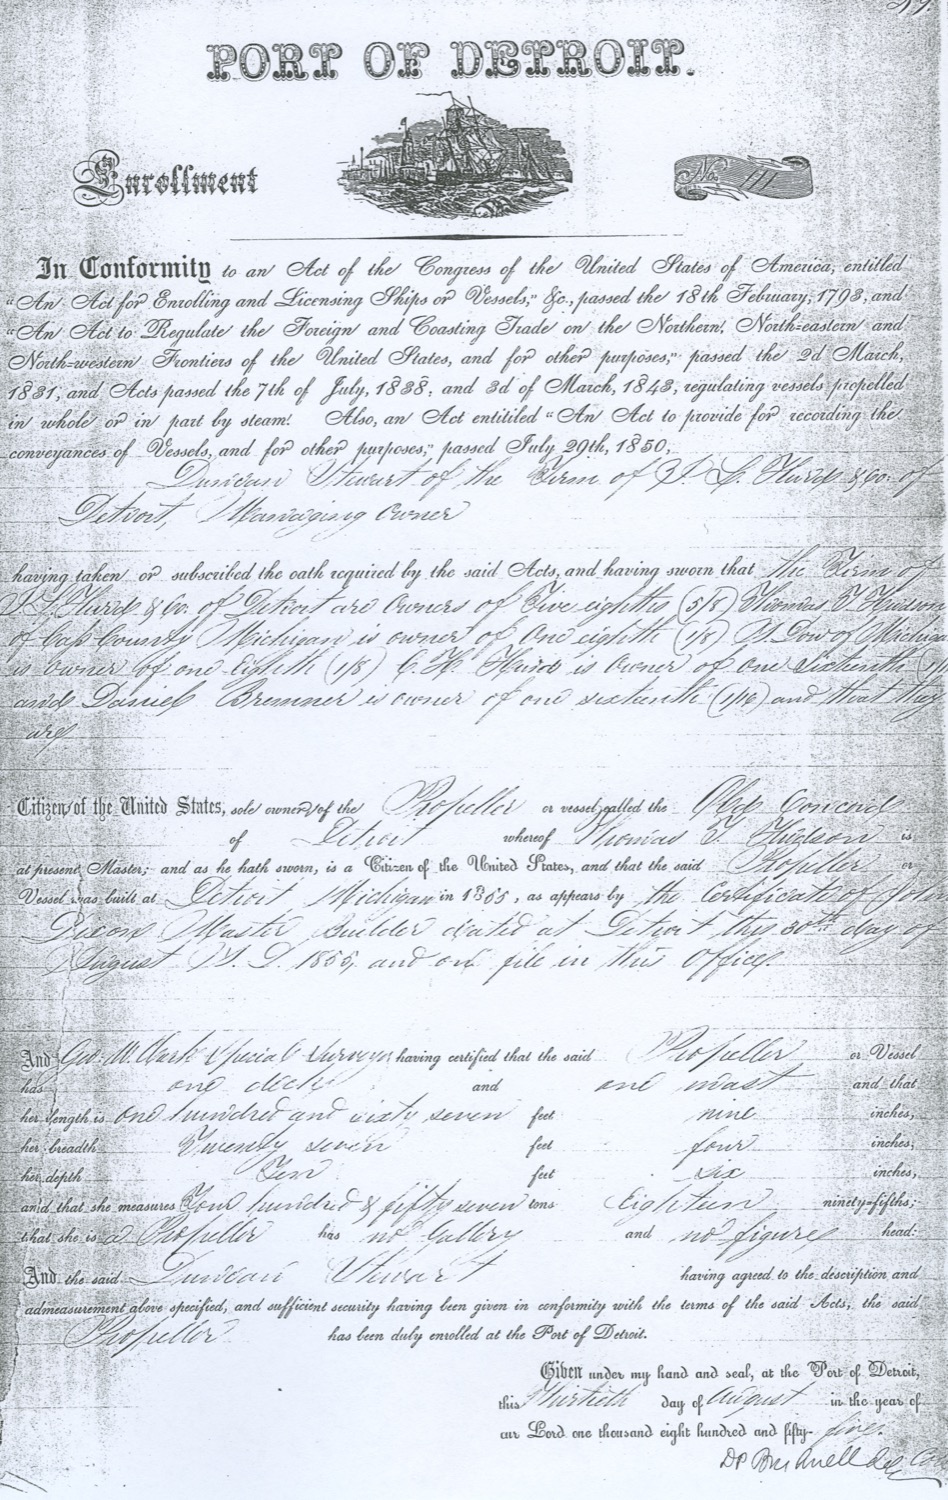 PORT OF DETROIT.
Enrollment
No. 111
In Conformity to an Act of the Congress of the United States of America, entitled
"An Act for Enrolling and Licensing Ships or Vessels," &c., passed the 18th February, 1793, and
"An Act to Regulate the Foreign and Coasting Trade on the Northern, North=eastern and
North=western Frontiers of the United States, and for other purposes," passed the 2d March,
1831, and Acts passed the 7th of July, 1838, and 3d of March, 1843, regulating vessels propelled
in whole or in part by steam. Also, an Act entitiled "An Act to provide for recording the
conveyances of Vessels, and for other purposes," passed July 29th, 1850,
Duncan Stewart of the Firm of J. L. Hurd & Co. of
Detroit, Managing Owner
having taken or subscribed the oath required by the said Acts, and having sworn that the Firm of
J. L. Hurd & Co. of Detroit are Owners of Five eighths (5/8) Thomas T. Hudson
of Cass County Michigan is owner of One eighth (1/8) Dow of Michigan
is owner of one eighth (1/8) C. H. Hurd is Owner of one sixteenth
and Daniel Bremner is owner of one sixteenth (1/16) and that they
are
Citizen of the United States, sole owner of the Propeller or vessel called the Old Concord
of Detroit whereof Thomas T. Hudson is
at present Master; and as he hath sworn, is a Citizen of the United States, and that the said Propeller or
Vessel was built at Detroit Michigan in 1855, as appears by the Certificate of John
Dixon Master Builder dated at Detroit this 30th day of
August A. D. 1855, and on file in this Office.
And Geo. W. Clark Special Surveyor having certified that the said Propeller or Vessel
has one deck and one mast and that
her length is One hundred and sixty seven feet nine inches,
her breadth Twenty seven feet four inches,
her depth Ten feet six inches,
and that she measures Four hundred & fifty seven tons Eighteen ninety=fifths;
that she is a Propeller has no Gallery and no figure head:
And the said Duncan Stewart having agreed to the description and
admeasurement above specified, and sufficient security having been given in conformity with the terms of the said Acts, the said
Propeller has been duly enrolled at the Port of Detroit.
Given under my hand and seal, at the Port of Detroit,
this Thirtieth day of August in the year of
our Lord one thousand eight hundred and fifty- five.